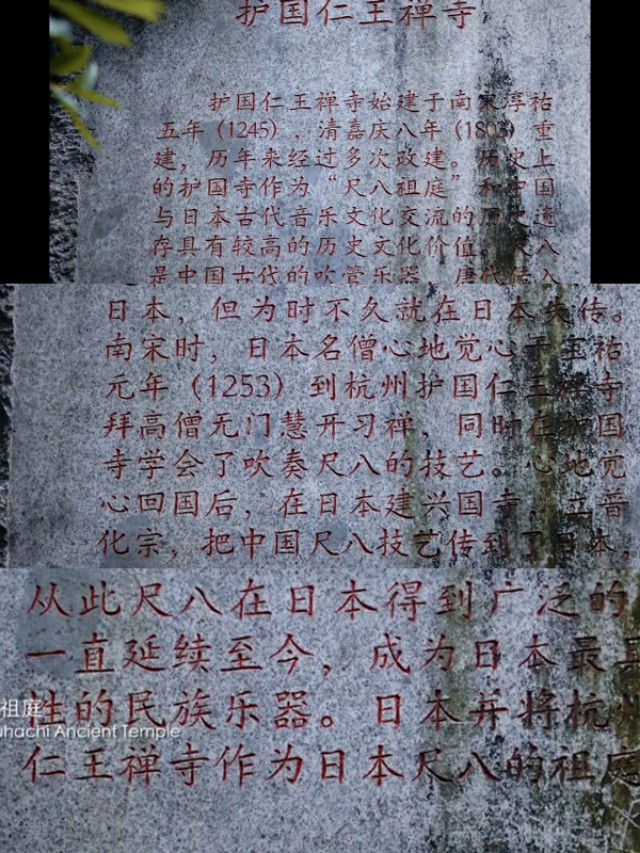 护国仁王禅寺
护国仁王禅寺始建于南宋淳祐
五年(1245),清嘉庆八年(1803)重
建,历年来经过多次改建。历史上
的护国寺作为“尺八祖庭”和中国
与日本古代音乐文化交流的历史遗
存具有较高的历史文化价值。尺八
是中国古代的吹管乐器,唐代传入
日本,但为时不久就在日本失传。
南宋时,日本名僧心地觉心于宝祐
元年(1253)到杭州护国仁王禅寺
拜高僧无门慧开习禅,同时在护国
寺学会了吹奏尺八的技艺。心地觉
心回国后,在日本建兴国寺,立普
化宗,把中国尺八技艺传到了日本,
从此尺八在日本得到广泛的
一直延续至今,成为日本最具
性的民族乐器。日本并将杭州
仁王禅寺作为日本尺八的祖庭
祖庭
uhachi Ancient Temple